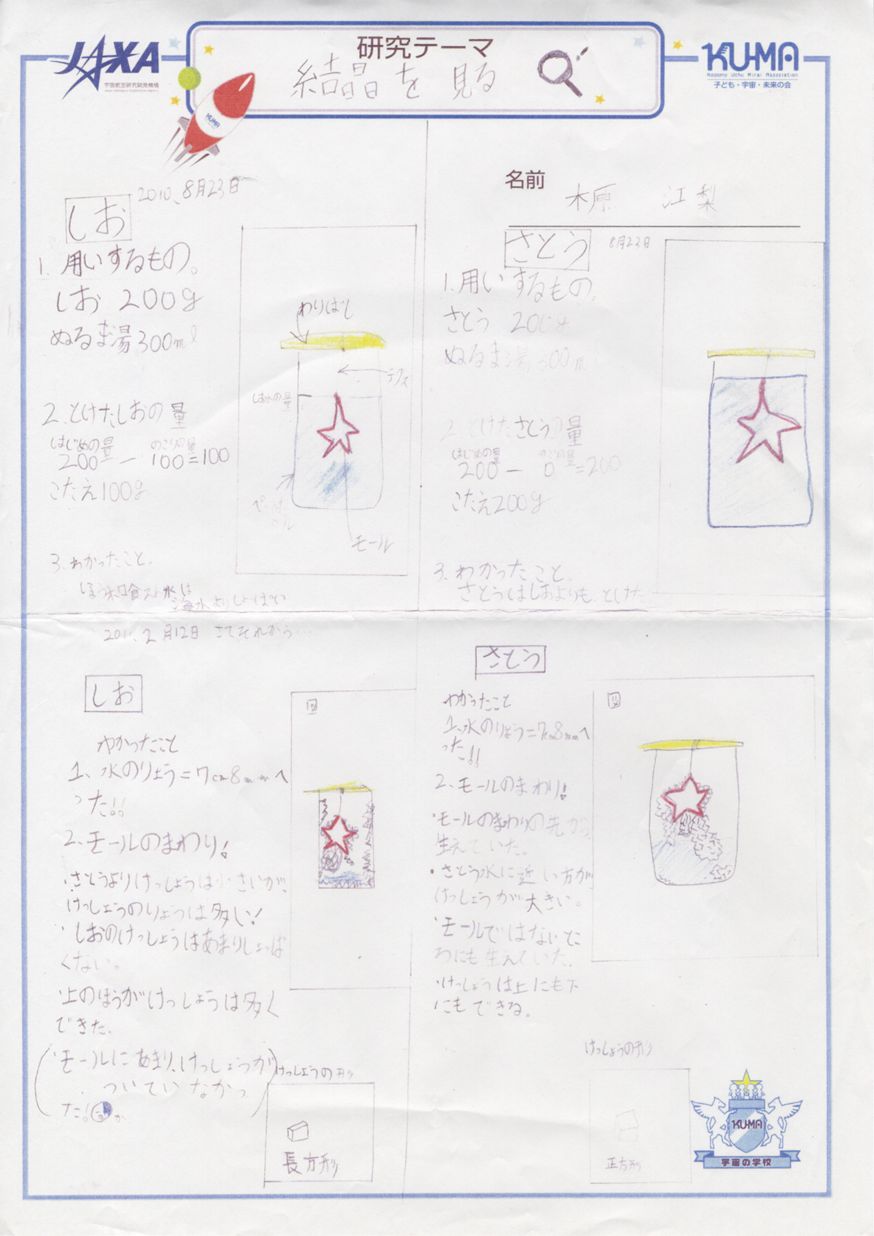 JAXA
宇宙航空研究開発機構
研究テーマ
結晶を見る
KU-MA
Kodomo Uchu Mirai Association
子ども・宇宙・未来の会
KUMA
名前
木原 江梨
2010、8月23日
しお
1. 用いするもの。
しお 200g
ぬるま湯300ml
2.とけたしおの量
はじめの量 のこりの量
200 - 100=100
こたえ100g
3.わかったこと。
海水よりしょっぱい
わりはし
モール
さとう
8月23日
1.用いするもの。
さとう 200g
ぬるま湯300ml
2.とけたさとうの量
はじめの量 のこりの量
200 - 0=200
こたえ200g
3.わかったこと。
さとうはしおよりも、とけた
2月12日 さてそれから…
しお
わかったこと
1、水のりょう=7cm8mmへ
った!!
2、モールのまわり!
・さとうよりけっしょうは小さいが、
けっしょうのりょうは多い!
・しおのけっしょうはあまりしょっぱ
くない。
・上のほうがけっしょうは多く
できた。
(・モールにあまり、けっしょうが
ついていなかっ
た!
図
けっしょうの形
長方形
さとう
わかったこと
1.水のりょう=7cm8mmへ
った!!
2.モールのまわり!
・モールのまわりの先から
生えていた。
・さとう水に近い方が
けっしょうが大きい。
・モールではないとこ
ろにも生えていた。
・けっしょうは上にも下
にもできる。
図
けっしょうの形
正方形
KU-MA
宇宙の学校